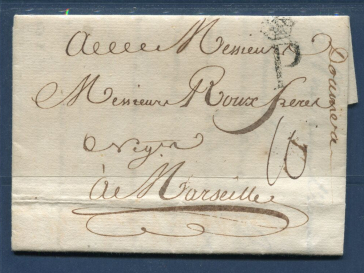 A Messieurs
P
Messieurs Roux freres
Negts
à Marseille
10